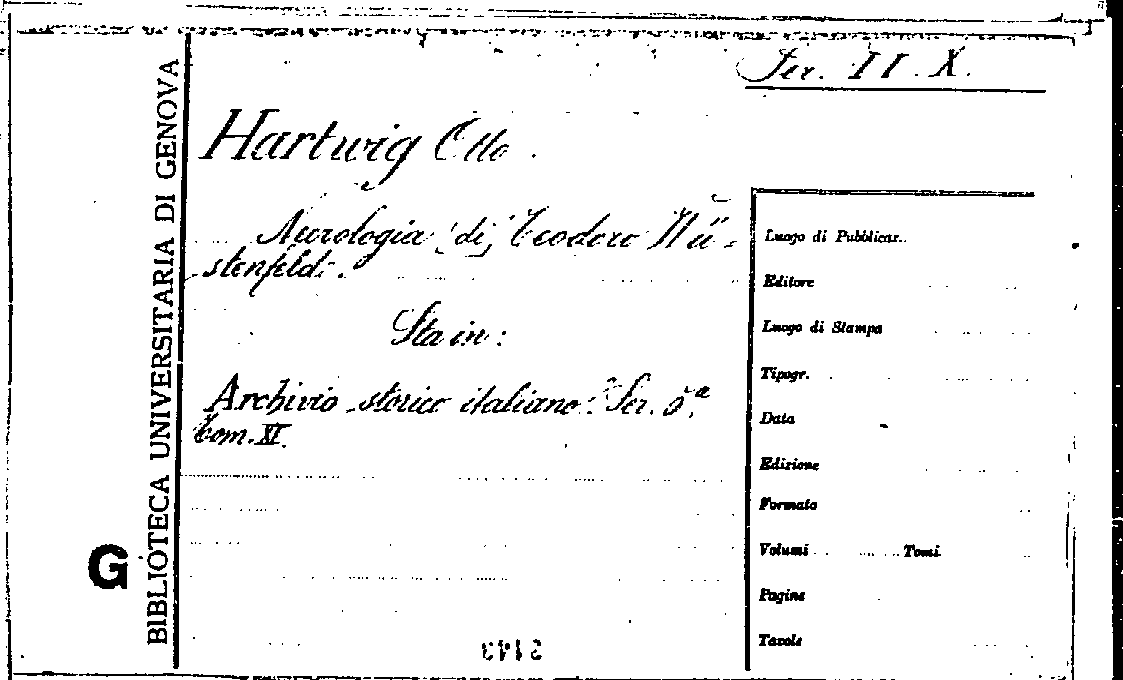 Ser. II. X.
Hartwig Otto.
Necrologia (di) Teodoro Wü-
stenfeld.
Sta in:
Archivio storico italiano. Ser. 5.ª
Tom. XI.
BIBLIOTECA UNIVERSITARIA DI GENOVA
G
Luogo di Pubblicaz.
Editore
Luogo di Stampa
Tipogr.
Data
Edizione
Formato
Volumi Tomi
Pagine
Tavole